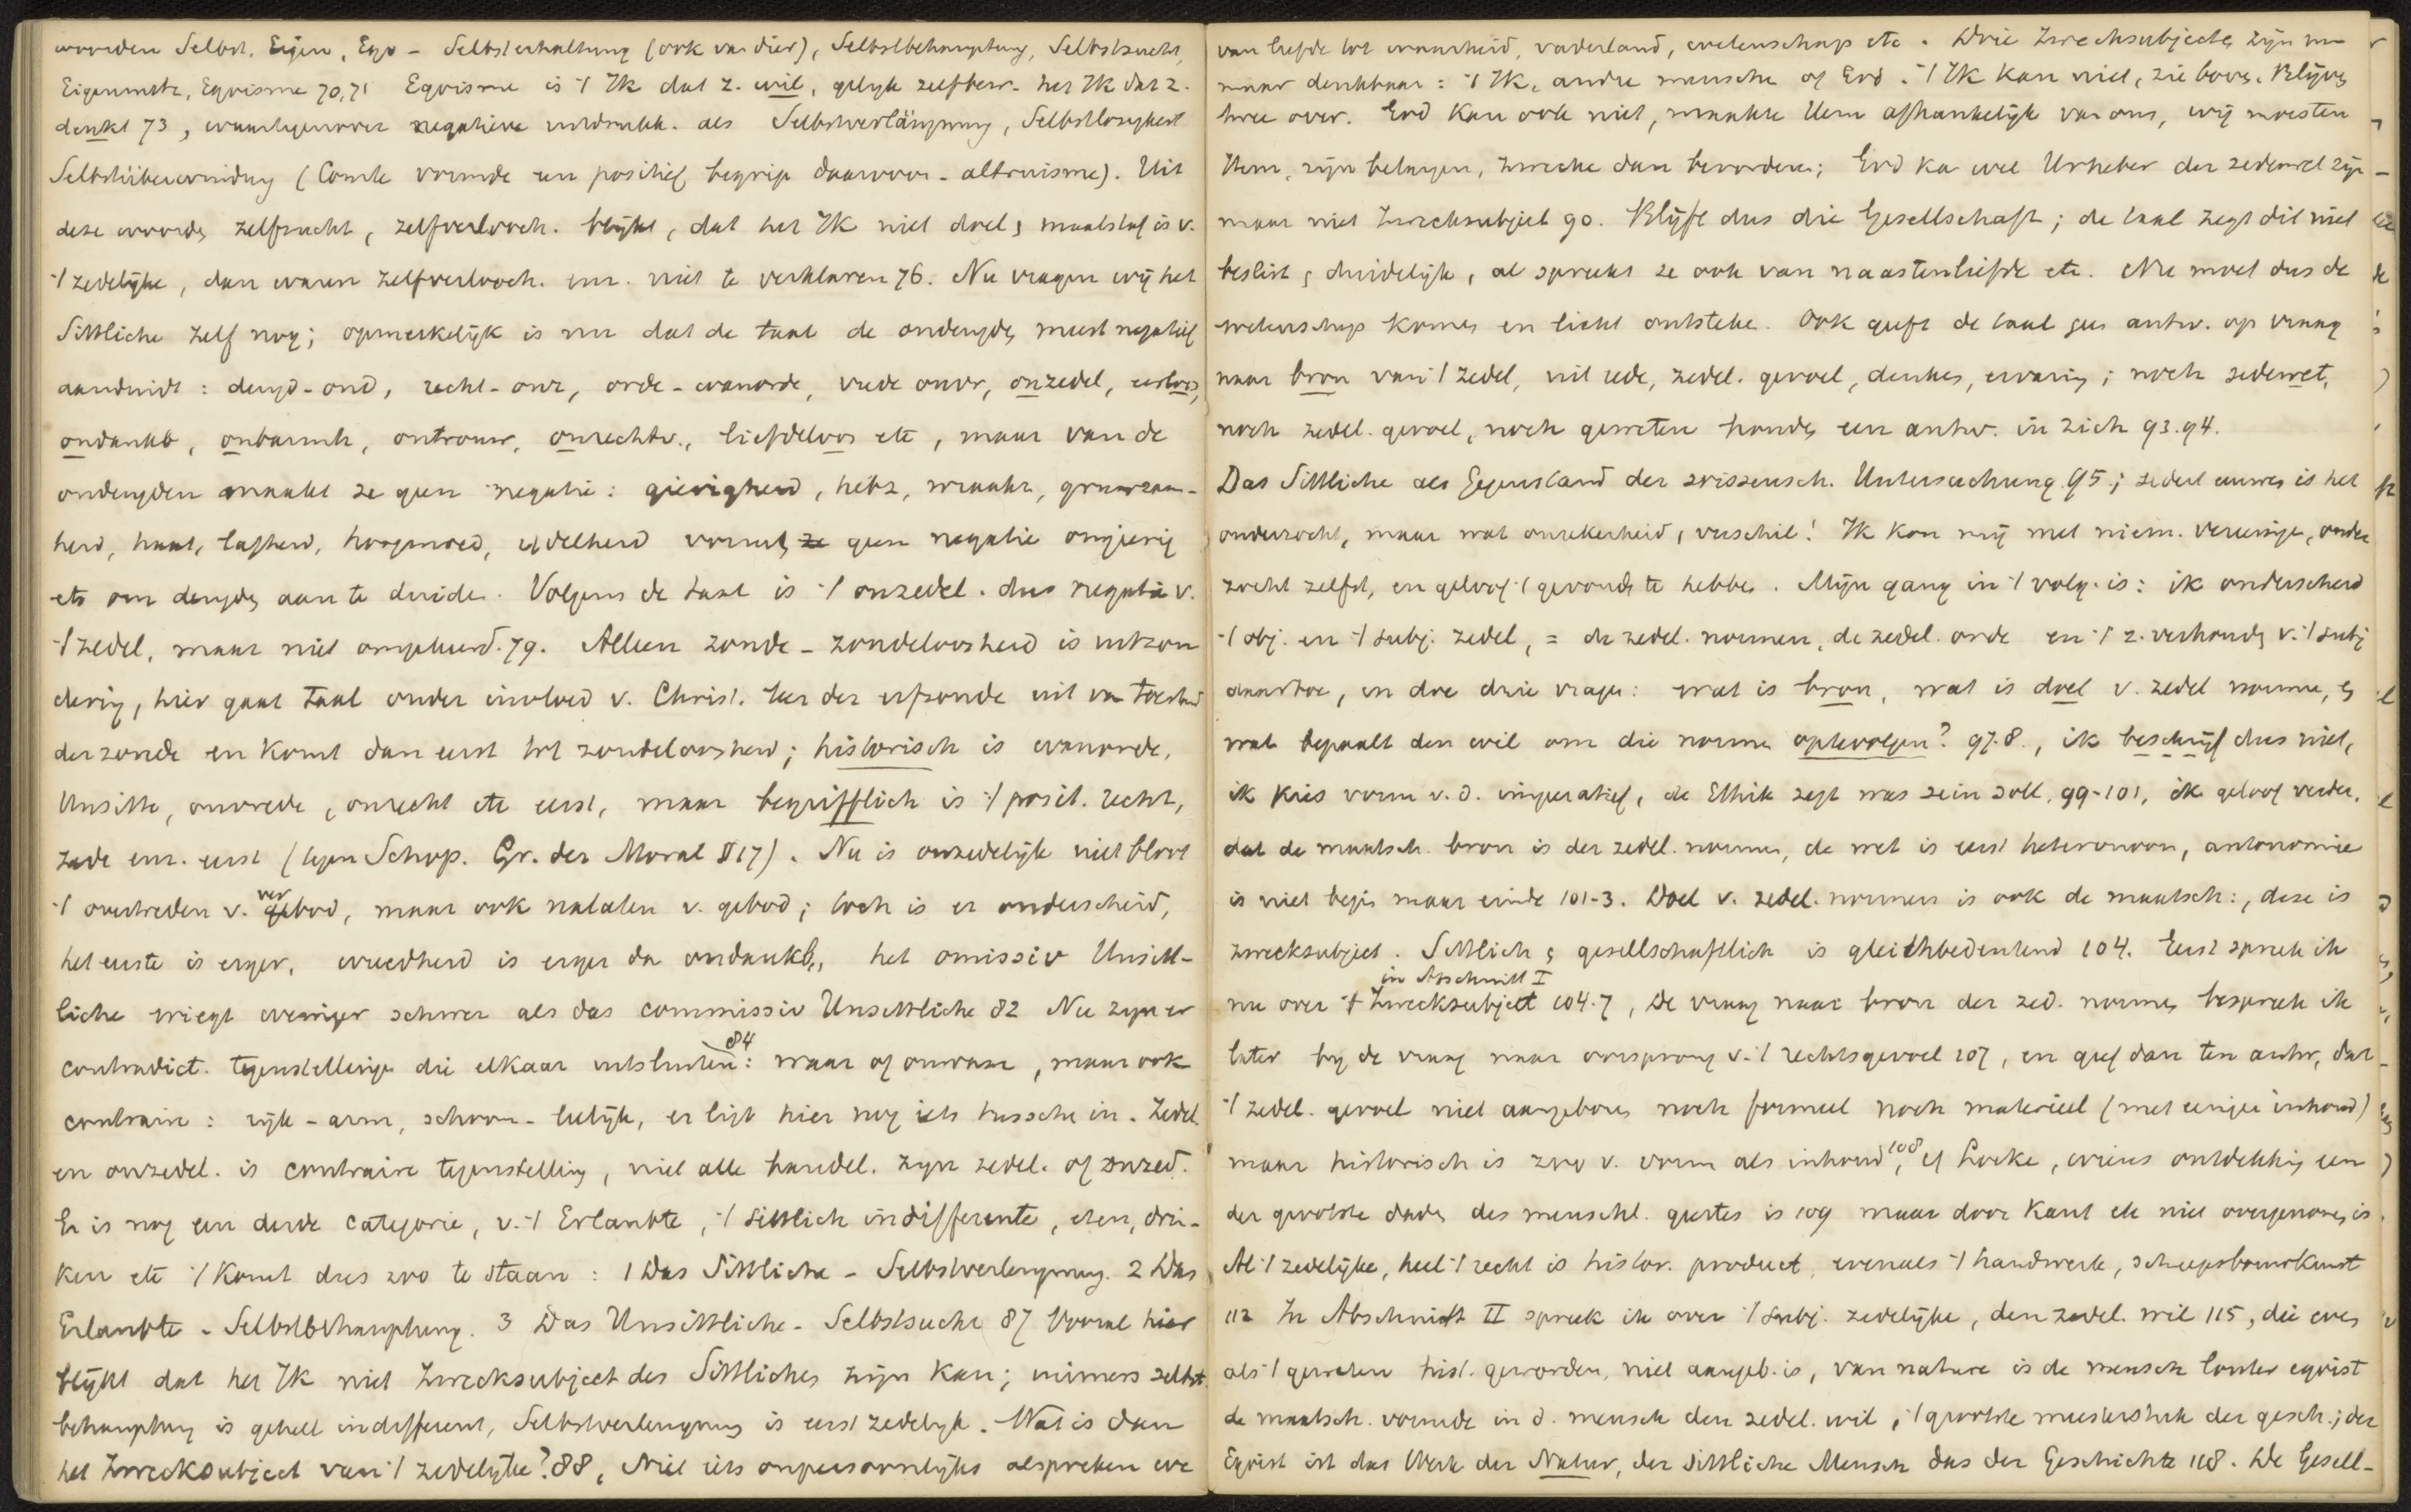 woorden Selbst, Eigen, Ego - Selbsterhaltung (ook van dier), Selbstbehauptung, Selbstsucht,
Eigennutz, Egoisme 70, 71 Egoisme is 't Ik dat z. wil, gelijk zelfbew. het Ik dat z.
denkt 73, waartegenover negatieve uitdrukk. als Selbstverläugnung, Selbstlosigkeit
Selbstüberwindung (Comte vormde een positief begrip daarvoor - altruisme). Uit
deze woorden zelfzucht, zelfverlooch. blijkt, dat het Ik niet doel, maatstaf is v.
't zedelijke, dan waren zelfverlooch. enz. niet te verklaren 76. Nu vragen wij het
Sittliche zelf nog; opmerkelijk is nu dat de taal de ondeugden meest negatief
aanduidt: deugd-ond, recht-onr, orde-wanorde, vrede onvr, onzedel, eerloos,
ondankb, onbarmh, ontrouw, onrechtv., liefdeloos etc, maar van de
ondeugden maakt ze geen negatie: gierigheid, hebz, wraakz, grauwzaam-
heid, haat, lafheid, hoogmoed, ijdelheid vormt ze geen negatie ongierig
etc om deugden aan te duiden. Volgens de taal is 't onzedel. dus negatie v.
't zedel, maar niet omgekeerd. 79. Alleen zonde - zondeloosheid is uitzon
dering, hier gaat taal onder invloed v. Christ. leer der erfzonde uit van toestand
der zonde en komt dan eerst tot zondeloosheid; historisch is wanorde,
Unsitte, onvrede, onrecht etc eerst, maar begrifflich is 't posit. recht,
zede enz. eerst (tegen Schop. Gr. der Moral § 17). Nu is onzedelijk niet bloot
't overtreden v. verbod, maar ook nalaten v. gebod; toch is er onderscheid,
het eerste is erger, wreedheid is erger dan ondankb, het omissiv Unsitt-
liche wiegt weniger schwer als das commissiv Unsittliche 82 Nu zijn er
contradict. tegenstellingen die elkaar uitsluiten 84: waar of onwaar, maar ook
contraire: rijk - arm, schoon - lelijk, er ligt hier nog iets tusschen in. Zedel.
en onzedel. is contraire tegenstelling, niet alle handel. zijn zedel. of onzed.
Er is nog een derde categorie, v. 't Erlaubte, 't sittlich indifferente, eten, drin-
ken etc 't komt dus zoo te staan: 1 Das Sittliche - Selbstverleugnung. 2 Das
Erlaubte - Selbstbehauptung. 3 Das Unsittliche - Selbstsucht 87 Vooral hier
blijkt dat het Ik niet Zwecksubject des Sittlichen zijn kan; immers zelbst
behauptung is geheel indifferent, Selbstverleugnung is eerst zedelijk. Wat is dan
het Zwecksubject van 't zedelijke? 88, Niet iets onpersoonlijks al spreken we
van liefde tot waarheid, vaderland, wetenschap etc. Drie Zwecksubjecte zijn nu
maar denkbaar: 't Ik, andre menschen of God. 't Ik kan niet, zie boven. Blijven
twee over. God kan ook niet, maakte Hem afhankelijk van ons, wij moesten
Hem, zijn belangen, zwecke dan bevorderen; God kan wel Urheber der zedenwet zijn
maar niet Zwecksubject 90. Blijft dus die Gesellschaft; de taal zegt dit niet
beslist, duidelijk, al spreekt ze ook van naastenliefde etc. Nu moet dus de
wetenschap komen en licht ontsteken. Ook geeft de taal geen antw. op vraag
naar bron van 't zedel, uit rede, zedel. gevoel, denken, ervaring; noch zedenwet,
noch zedel. gevoel, noch geweten houden een antw. in zich 93. 94.
Das Sittliche als Gegenstand der wissensch. Untersuchung 95; sedert eeuwen is het
onderzocht, maar wat onzekerheid, verschil! Ik kon mij met niem. vereenigen, onder
zocht zelfst, en geloof 't gevonden te hebben. Mijn gang in 't volg. is: ik onderscheid
't obj. en 't subj. zedel, = de zedel. normen, de zedel. orde en 't z. verhouden v. 't subj
daartoe, en doe drie vragen: wat is bron, wat is doel v. zedel normen, en
wat bepaalt den wil om die normen optevolgen? 97.8., ik beschrijf dus niet,
ik kies vorm v. d. imperatief, de Ethik zegt was sein soll, 99-101, ik geloof verder,
dat de maatsch. bron is der zedel. normen, de wet is eerst heteronoom, autonomie
is niet begin maar einde 101-3. Doel v. zedel. normen is ook de maatsch:, deze is
zwecksubject. Sittlich, gesellschaftlich is gleichbedeutend 104. Eerst spreek ik
in Abschnitt I
nu over 't Zwecksubject 104-7, De vraag naar bron der zed. normen bespreek ik
later bij de vraag naar oorsprong v. 't rechtsgevoel 107, en geef dan ten antw, dat
't zedel. gevoel niet aangeboren noch formeel noch materieel (met eenigen inhoud)
maar historisch is zoo v. vorm als inhoud 108, cf Locke, wiens ontdekking een
der grootste daden des menschl. geestes is 109 maar door Kant etc niet overgenomen is.
Al 't zedelijke, heel 't recht is histor. product, evenals 't handwerk, scheepsbouwkunst
112 In Abschnitt II spreek ik over 't subj. zedelijke, den zedel. wil 115, die even
als 't geweten hist. geworden, niet aangeb. is, van nature is de mensch louter egoist
de maatsch. vormde in d. mensch den zedel. wil, 't grootste meesterstuk der gesch.; der
Egoist ist das Werk der Natur, der sittliche Mensch das der Geschichte 118. De Gesell-